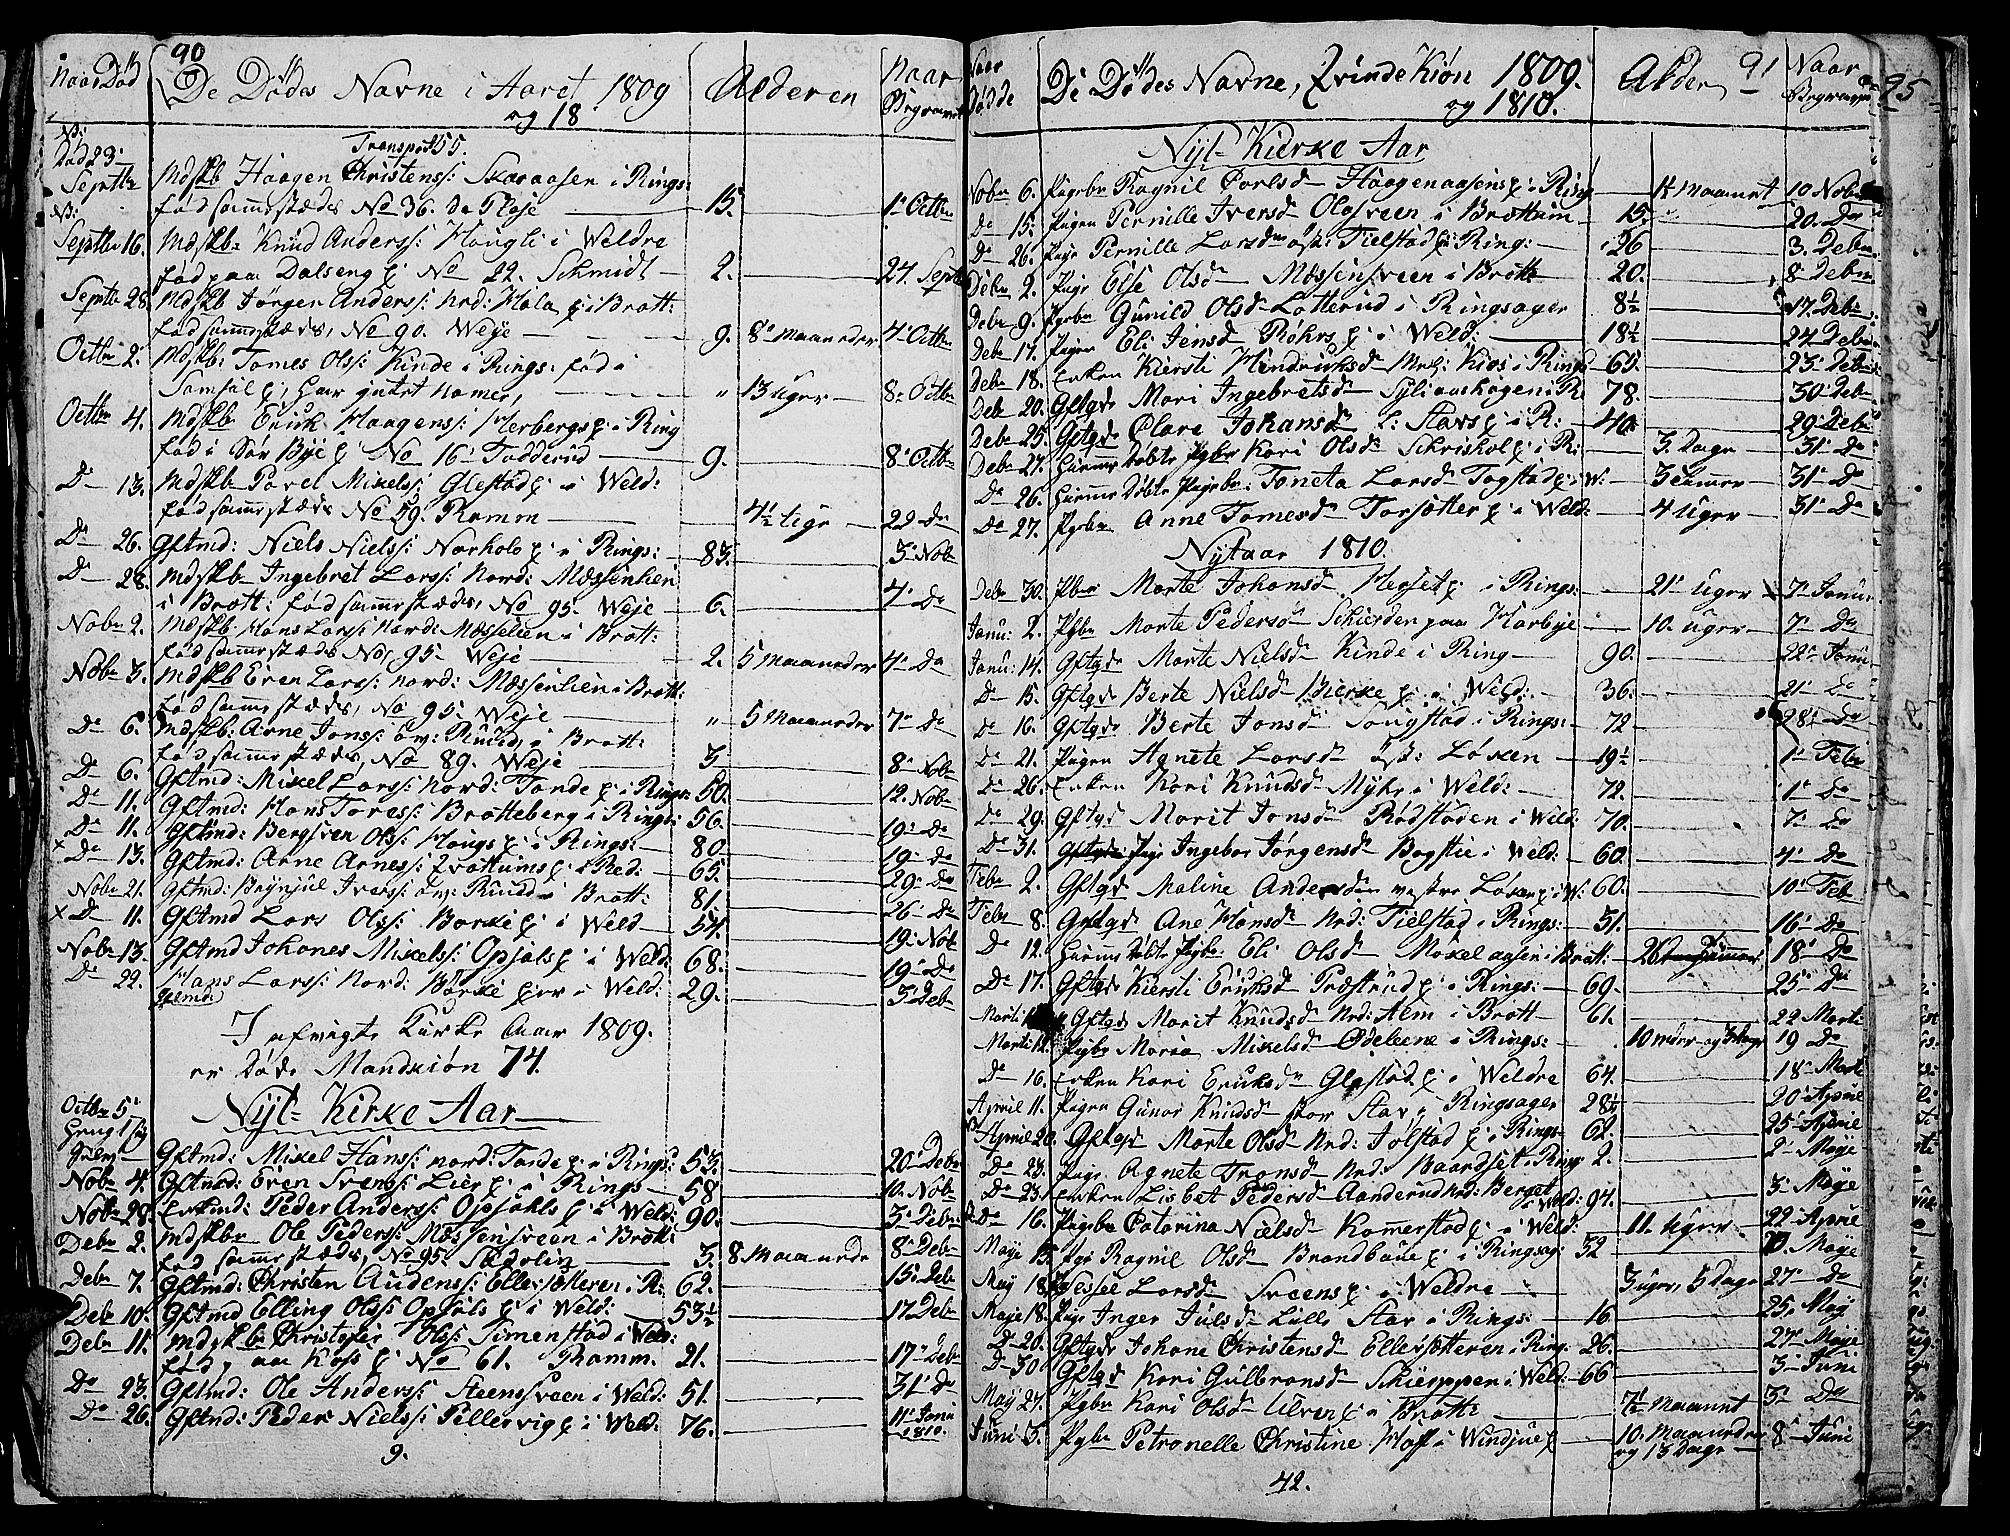 90
Naar Død
De Dødes Navne i Aaret 1809
og 18
Alderen
Naar Begravet
Transport 55.
Død 23 Septbr Mdskb Haagen Christenss: Skaraasen i Rings:
fød sammestædes No 36. De Place 15. 1' Octbr
Septbr 16. Mdskb: Knud Anderss: Hougli i Weldre
fød paa Dalseng p: No 22. Schmidt 2. 24 Septb
Septbr 28. Mdskb Jørgen Anderss: nrd: Hola p: i Brott:
fød sammestæds, No 90. Weje 9. 8' Maaneder 4' Octbr
Octbr 2. Mdskb: Tomes Olss: Kinde i Rings: fød i
Samsal p: har intet Nomer, " 13 Uger 8' Octbr
Octbr 4. Mdskb Erick Haagenss: Herbergs p: i Ring
fød i Sør Bye p: No 16' Todderud 9. 8' Octbr
D 13. Mdskb Povel Mikelss: Glestad p: i Weld:
fød sammestæds No 59. Ramm 4½ Uge 22 D
D 26. Gftmd: Niels Nielss: Narholo p: i Rings: 83. 3' Nob
D 28. Mdskb Ingebret Larss: Nord: Mæssenlien
i Brott: fød sammestædes, No 95. Weje 6. 4' D
Nobr 2. Mdskb: Hans Larss: Nord: Mæsselien i Brott:
fød sammestæds No, 95. Weje 2. 5 Maaneder 4' D
Nobr 3. Mdskb Even Larss: nord: Mæssenlien i Brott:
fød sammestædes, No 95. Weje " 5 Maaneder 7' D
D 6. Mdskb: Arne Jonss: øv: Ruud i Brott:
fød sammestædes, No 89. Weje 3 8' Nob
D 6. Gftmd: Mikel Larss: nord: Tande p: i Rings: 50. 12. Nob
D 11. Gftmd: Hans Toress: Brotteberg i Rings: 56. 19' D
D 11. Gftmd: Bergsven Olss: Hougs p: i Rings: 80 19' D
x D 13. Gftmd: Arne Arness: p: i Red: 65. 29' D
Nobr 21. Gftmd: Brynjul Iverss: øv: Ruud i Brott: 81. 26' D
x D 11. Gftmd Lars Olss: Borke p: i Weld 54. 19' Nob
Nobr 13. Gftmd Johanes Mikelss: Opsals p: i Weld: 68. 19' D
D 22. Hans Larss: Nord: Børke p: i Weld: 29. 3' Deb
I afvigte Kirke Aar 1809.
er Døde Mandkiøn 74.
Nyt Kirke Aar
Octbr 5'
Gftmd: Mikel Hanss: nord: Tande p: i Rings: 53. 20' Debr
Nobr 4. Gftmd: Even Svenss: Lier p: i Rings 58 10. Nob
Nobr 28. Enkmd: Peder Anderss: Opsahls p: i Weld: 90. 3' Debr:
Debr 2. Mdskbr Ole Pederss: Mæssensveen i Brott:
fød sammestædes, No 95. 3. 8 Maanede 8' Deb
Debr 7. Gftmd: Christen Audenss: Ellersætteren i R: 62. 15' Deb
Deb 10. Gftmd Elling Olss: Opsals p: i Weld: 53½ 17 Deb
Debr 11. Mdskbr Christofer Olss: Simenstad i Weld:
fød paa Koss p: No 61. Ramm. 21. 17' Deb
D 23. Gftmd: Ole Anderss: Steensveen i Weld: 51. 31' D
D 26. Gftmd: Peder Nielss: Pellervig p: i Weld: 76. 11' Janu 1810.
9.
91
Naar Dødde
De Dødes Navne, Qvinde Kiøn 1809.
og 1810.
Alder
Naar Begraven
95
Nyt Kierke Aar
Nobr 6. Pigebr Ragnil Povlsd Haagenaasens p: i Ring 1½ Maanet 10 Nob
D 15. Pigen Pernille Iversd Olasveen i Brottum 15. 20. D
D 26. Pige Pernille Larsd øst: Tielstad p: i Ring: 26 3. Debr
Debr 2. Pige Else Olsd Mæssensveen i Brott 20. 8 Debr
Debr 9. Pigebr Gunild Olsd Lotterud i Ringsager 8½ 17. Debr
Debr 17. Pigen Eli Jensd Røhrs p: i Weld: 18½ 24 Debr
Debr 18. Enken Kiersti Hendriksd Mel: Kios i Rings 65. 23' Debr
Deb 20. Gftgd: Mari Ingebretsd Syliaashagen i R: 78. 30' Deb
Debr 25. Gftgd Clare Johansd L: Stavs p: i R: 40. 29' Deb
Debr 27. Hiemme Døbte Pigbr Kari Olsd Schrishol p: i R: 3 Dage 31' D
D 26. Hiemme Døbte Pigebr: Toneta Larsd Togstad p: i W: 3 Timer 31' D
D 27. Pigbr Anne Tomesd Torsætter p: i Weld: 4 Uger 31' D
Nytaar 1810.
Debr 30. Pbr Marte Johansd Herset p: i Rings: 21' Uger 3' Janu:
Janu: 2. Pigbr Marte Pedersd Schierden paa Harbye 10. Uger 7' D
Janu: 14. Gftgd Marte Nielsd Kinde i Ring 90. 22' Janu
D 15. Gftgd Berte Nielsd Bierke p: i Weld: 36. 21' D
D 16. Gftgd Berte Jonsd Tougstad i Rings: 72 28' D
D 21. Pigen Agnete Larsd Øst: Løken 19½ 1' Febr
D 26. Enken Kari Knudsd Mykr i Weld: 72. 1' D
D 29. Gftgd Marit Jonsd Rødstøden i Weld: 70. 7' D
D 31. Pige Ingebor Jørgensd Bogstie i Weld: 60. 4' D
Febr 2. Gftgd Maline Andersd vestre Løken p: i W: 60. 10' Feb
Febr 8. Gftgd Ane Hansd Nrd: Tielstad i Rings: 51. 16' D
D 12. Hiemme Døbte Pigbr: Eli Olsd Moxelaasen i Brott: 26 Timmer 18' D
D 17. Gftgd Kiersti Eriksd Præstrud p: i Rings: 69. 25' D
Marti 1 Gftgd Marit Knudsd Nrd: Alm i Brott 61. 22 Marti
Marti 12. Pigbr Maria Mikelsd Ødeleene i Rings: 10 mdr og Dage 19 D
D 16. Enken Kari Eriksd Glæstad p: i Weldre 64. 18' Marti
April 11. Pigen Gunor Knudsd stor Stav i Ringsager 28½ 20' April
April 20. Gftgd Marte Olsd Nrd: Jølstad p: i Rings 62. 25' April
D 23. Pige Agnete Tronsd Nrd: Baardset i Ring 2. 2' Maye
D 23. Enken Lisbet Pedersd Aanderud nrd: Berget i Weld: 94. 3' Maye
D 16. Pigebr Catarina Nielsd Komerstad p: i Weld: 11. Uger 22' April
Maye 15. Pige Ragnil Olsd Brandbaue p: i Ringsag: 32 10. Maye
May 18. Larsd Sveens p: i Weldre 3 uger, 5 Dage 27' D
Maye 18. Pige Inger Julsd Lille Stav i Rings: 16. 25. May
D 20. Gftgd Johane Christensd Ellersætteren i Ring: 26. 27' Maye
D 30. Gftgd Kari Gulbransd Schieppen i Weld: 66 3' Juni
May 27. Pigbr Kari Olsd Ulven p: i Brott: 7½ Maanet 3' D
Juni 3. Pigbr Petronelle Christine Hoff i Windjue p: 10. Maaneder og 13 Dage 8' Juni
42.